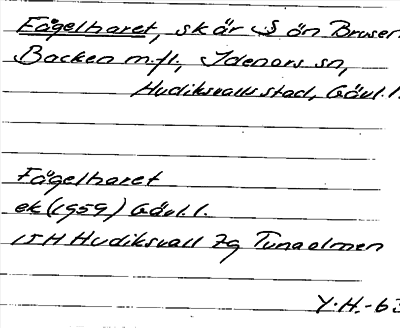 Fågelharet, skär S ön Bruser
Backen m.fl., Idenors sn,
Hudiksvalls stad, Gävl.l.
Fågelharet
ek (1959) Gävl.l.
15H Hudiksvall 7g Tunaolmen
Y.H.-63